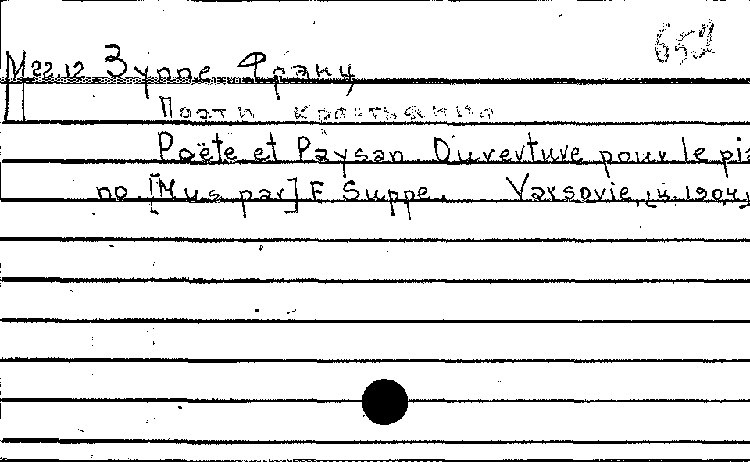 652
M 22.12 Зуппе Франц
Поэт и крестьянин
Poëte et Paysan Ouverture pour le pia
no. [Mus par] F Suppe. Varsovie, 1904,